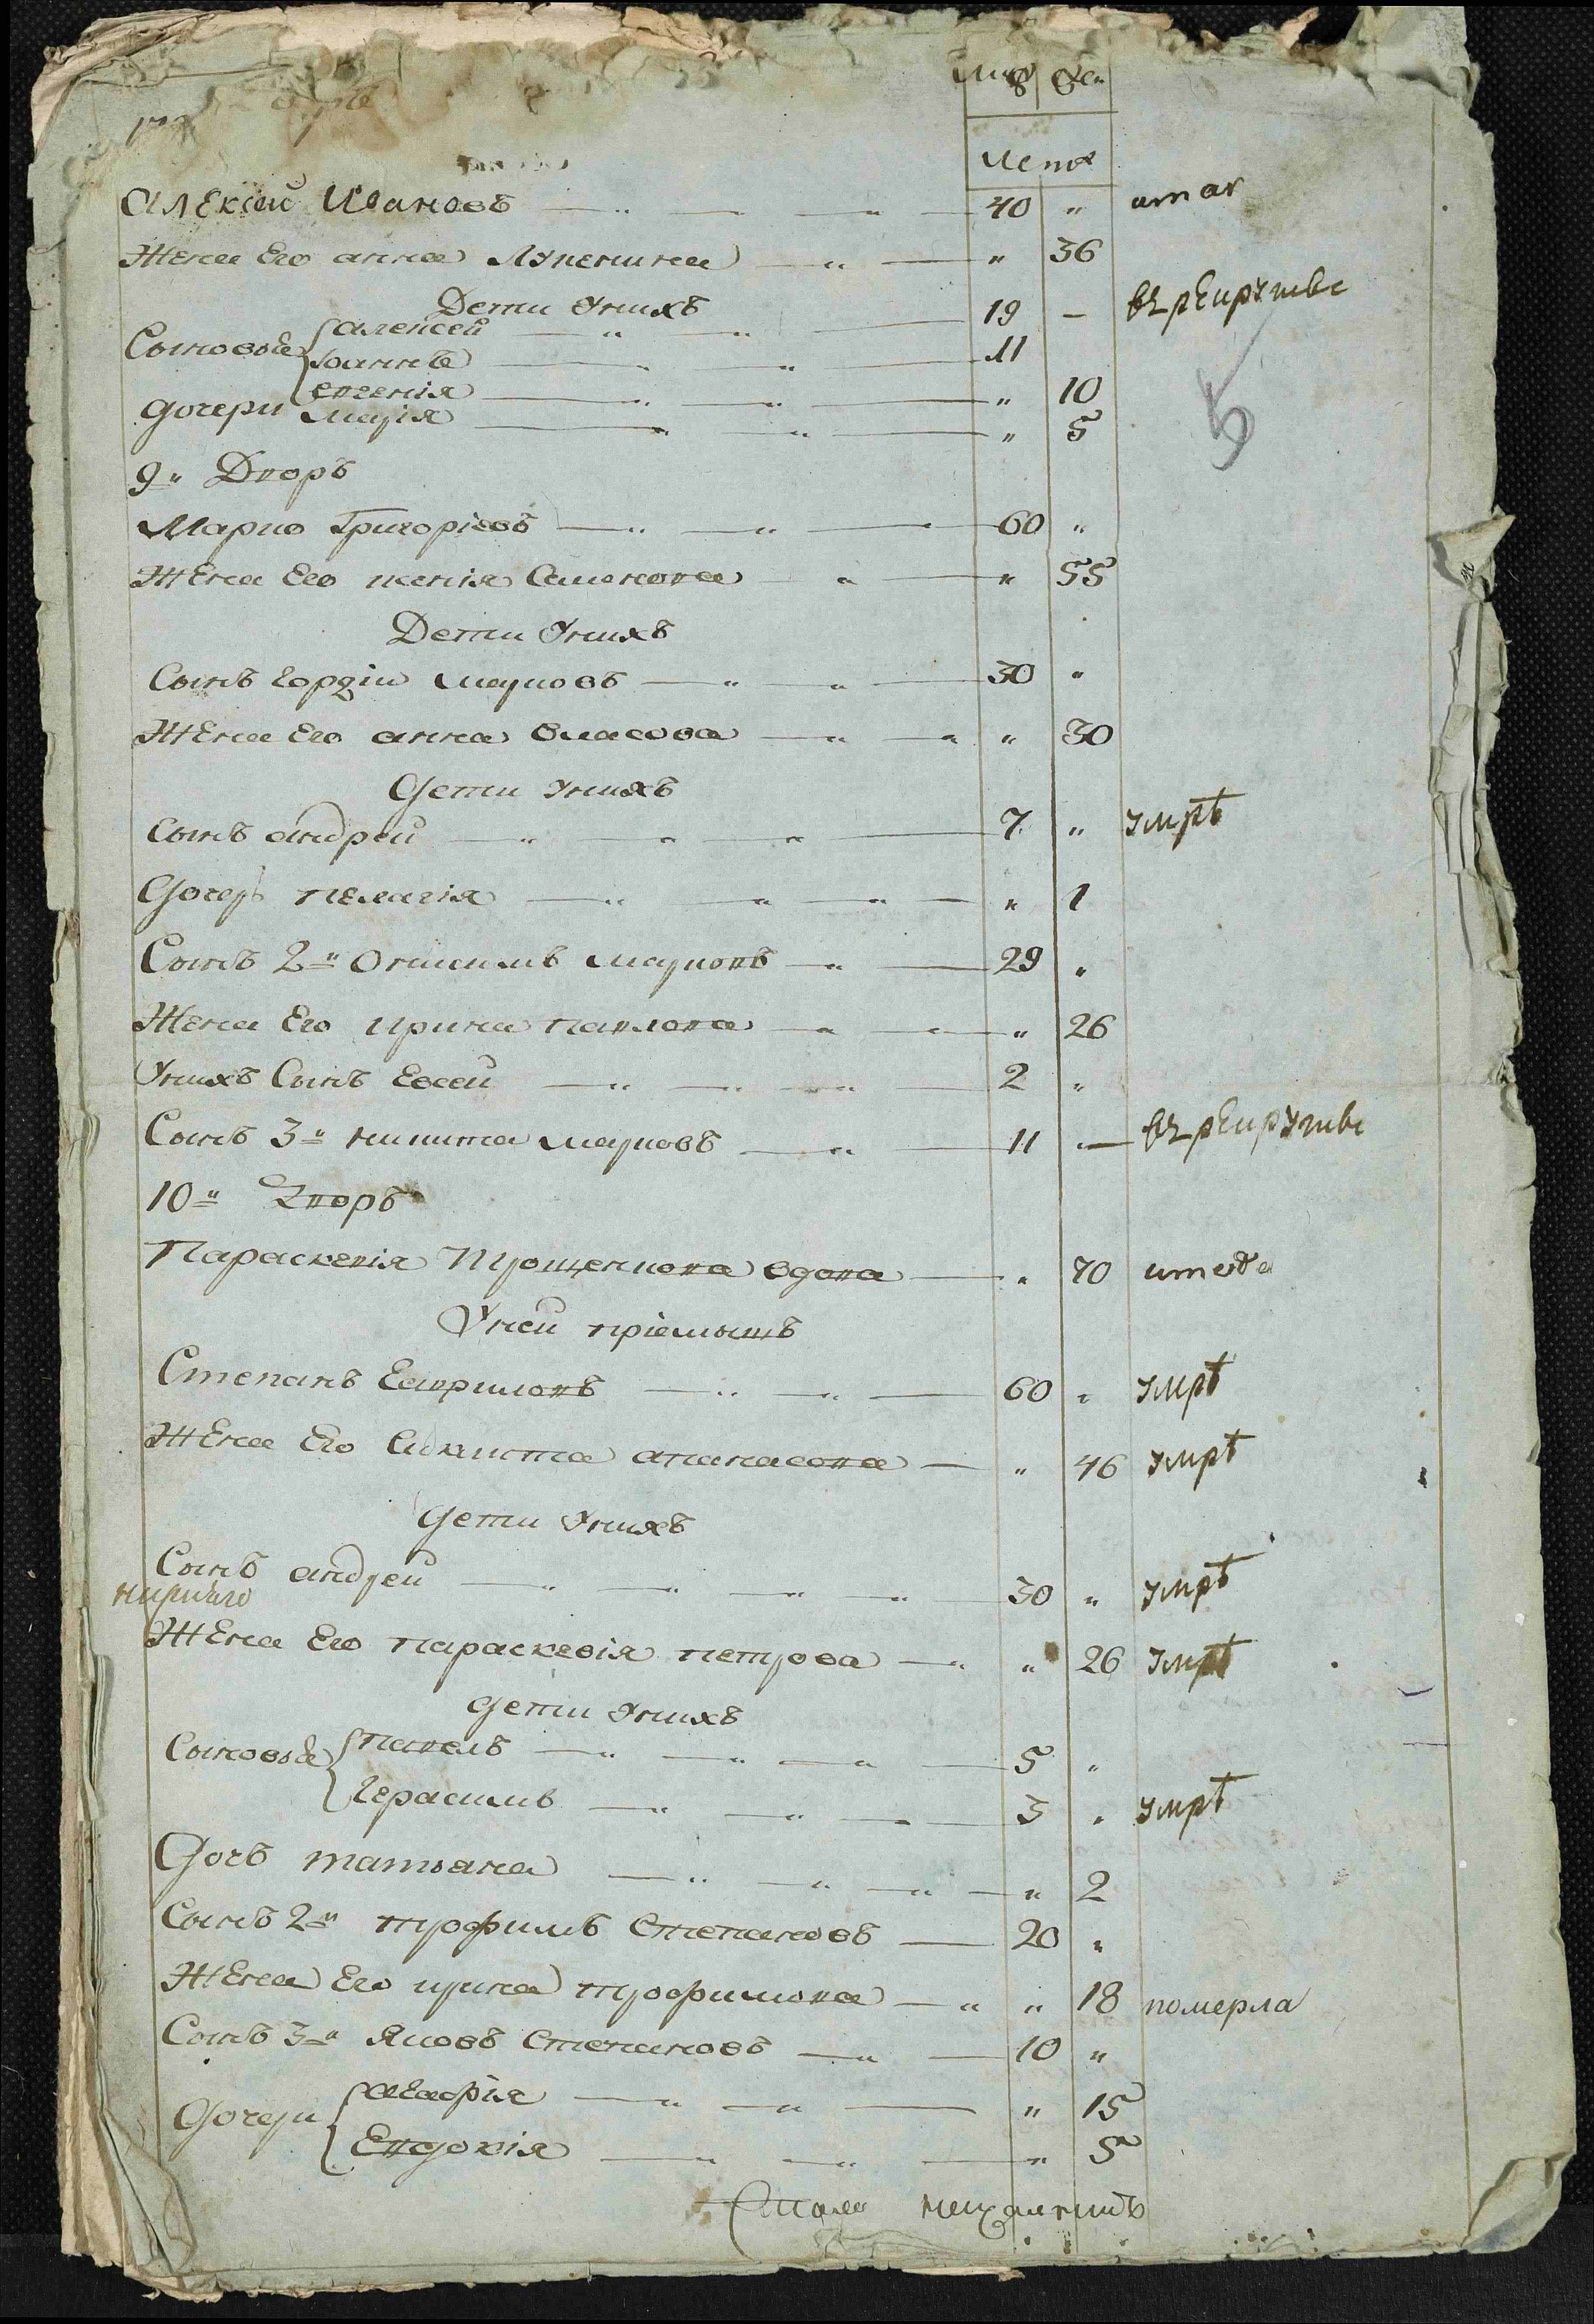 муж жен
лета
Алексей Ивановъ 40 "
Жена Его анна Лукенина " 36
Дети Унихъ
Сыновья { алексей 19 — въ рекрутве
Іоаннъ 11
дочери евгенія " 10
марія " 5
9й Дворъ
Марко Григоріевъ 60 "
Жена Его ксенія Самсонова " 55
Дети Унихъ
Сынъ Гордій марковъ 30 "
Жена Его анна Власова " 30
Дети Унихъ
Сынъ андрей 7 " умрѣ
Дочерь пелагія " 1
Сынъ 2й Онисимъ марковъ 29 "
Жена Его ирина павлова " 26
Унихъ Сынъ Евсей 2 "
Сынъ 3й никита марковъ 11 — въ рекрутве
10й Дворъ
Параскевія Трощенкова вдова " 70
Уней пріемышъ
Степанъ Гавриловъ 60 " умрѣ
Жена Его апанасова " 46 умрѣ
Дети Унихъ
Сынъ андрей 30 " умрѣ
Жена Его параскевія петрова " 26 умрѣ
Дети Унихъ
Сыновья { павелъ 5 "
Герасимъ 3 " умрѣ
Дочь татьяна " 2
Сынъ 2й трофимъ Степановъ 20 "
Жена Его ирина трофимова " 18 померла
Сынъ 3й Яковъ Степановъ 10 "
Дочери { агафія " 15
Евдокія " 5